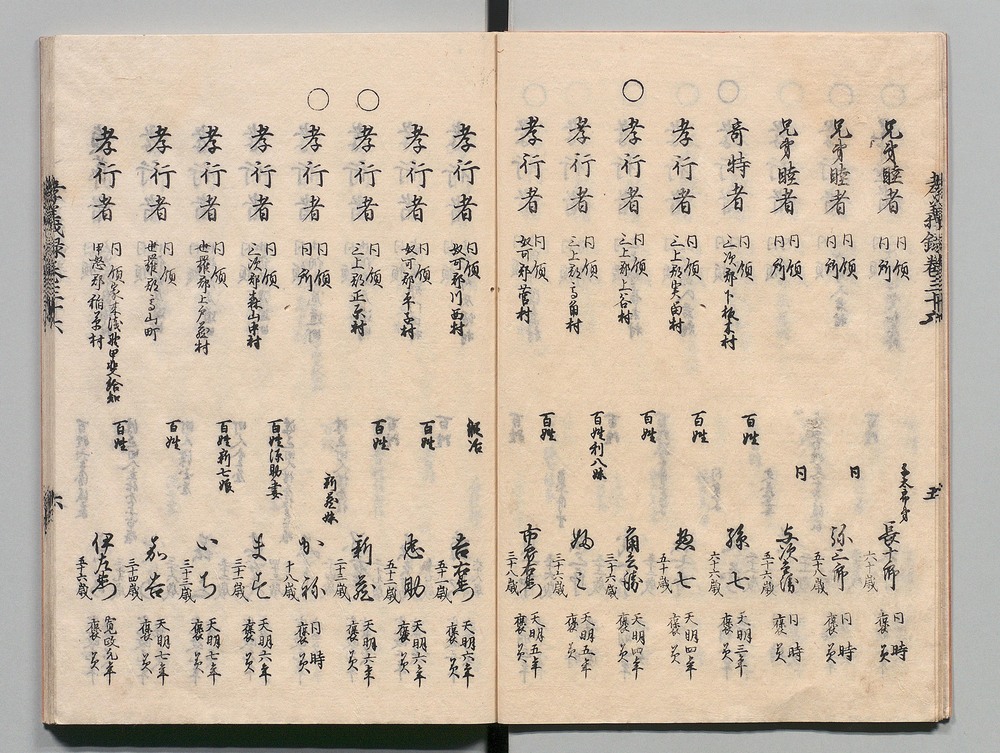 兄弟睦者 同領同所 五太郎弟 長十郎 六十歳 同時褒美
兄弟睦者 同領同所 同 弥三郎 五十八歳 同時褒美
兄弟睦者 同領同所 同 与次兵衛 五十六歳 同時褒美
○ 奇特者 同領三次郡下板木村 百姓 孫七 六十六歳 天明三年褒美
孝行者 同領三上郡実留村 百姓 惣七 五十歳 天明四年褒美
○ 孝行者 同領三上郡上谷村 百姓 角兵衛 三十六歳 天明四年褒美
孝行者 同領三上郡高角村 百姓利八妹 天明五年褒美
孝行者 同領奴可郡菅村 百姓 市右衛門 三十八歳 天明五年褒美
孝行者 同領奴可郡川西村 鍛冶 吉右衛門 五十一歳 天明六年褒美
孝行者 同領奴可郡平子村 百姓 忠助 五十二歳 天明六年褒美
○ 孝行者 同領三上郡正原村 百姓 新蔵 二十三歳 天明六年褒美
○ 孝行者 同領同所 新蔵妹 かね 十八歳 同時褒美
孝行者 同領三次郡森山中村 百姓源助妻 三十一歳 天明六年褒美
孝行者 同領世羅郡上戸原村 百姓新七娘 いち 三十三歳 天明七年褒美
孝行者 同領世羅郡高山町 百姓 嘉吉 三十四歳 天明七年褒美
孝行者 同領家来浅野甲斐給知甲怒郡稲草村 百姓 伊左衛門 五十六歳 寛政元年褒美